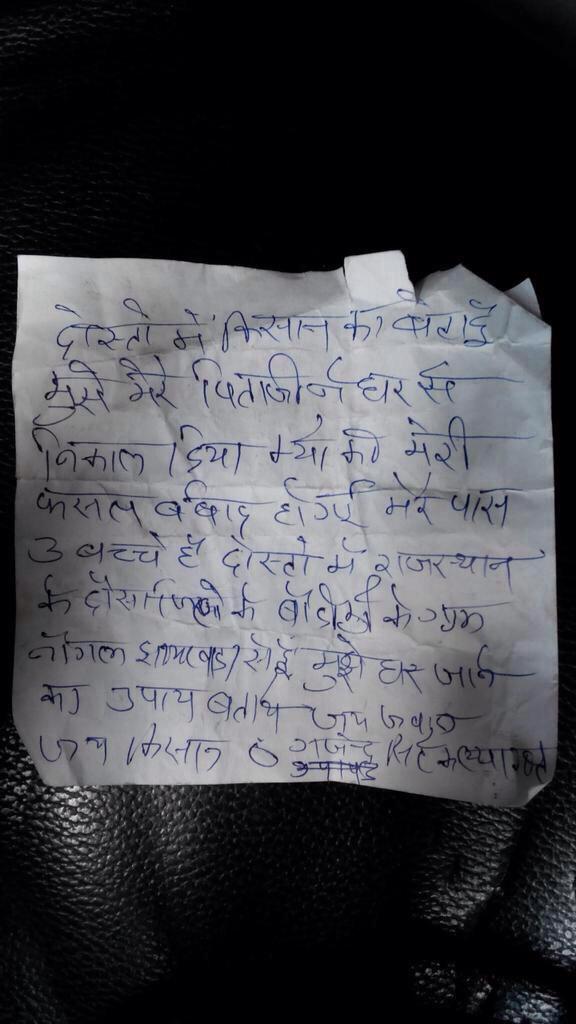 दोस्तो में किसान का बेटा हुँ
मुझे मेरे पिताजी ने घर से
निकाल दिया क्यो की मेरी
फसल बर्बाद होगई मेरे पास
3 बच्चे है दोस्तो में राजस्थान
के दौसा जिले के बॉदीकुई के ग्राम
नॉगल झामरवाडा से हुँ मुझे घर जाने
का उपाय बताये जय जवान
जय किसान गजेन्द्र सिंह कल्यावत